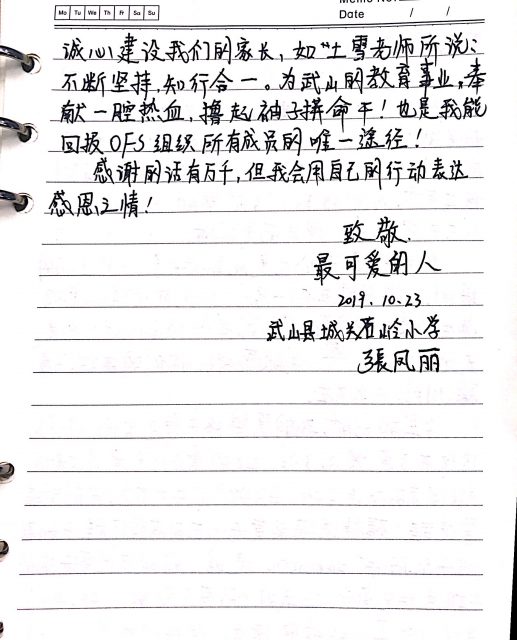 Mo Tu We Th Fr Sa Su
Memo No.
Date / /
诚心建设我们的家长，如"土雪老师所说：
不断坚持，知行合一。为武山的教育事业，奉
献一腔热血，撸起袖子拼命干！也是我能
回报OFS组织所有成员的唯一途径！
感谢的话有万千，但我会用自己的行动表达
感恩之情！
致敬.
最可爱的人
2019.10.23
武山县城关石岭小学
張凤丽